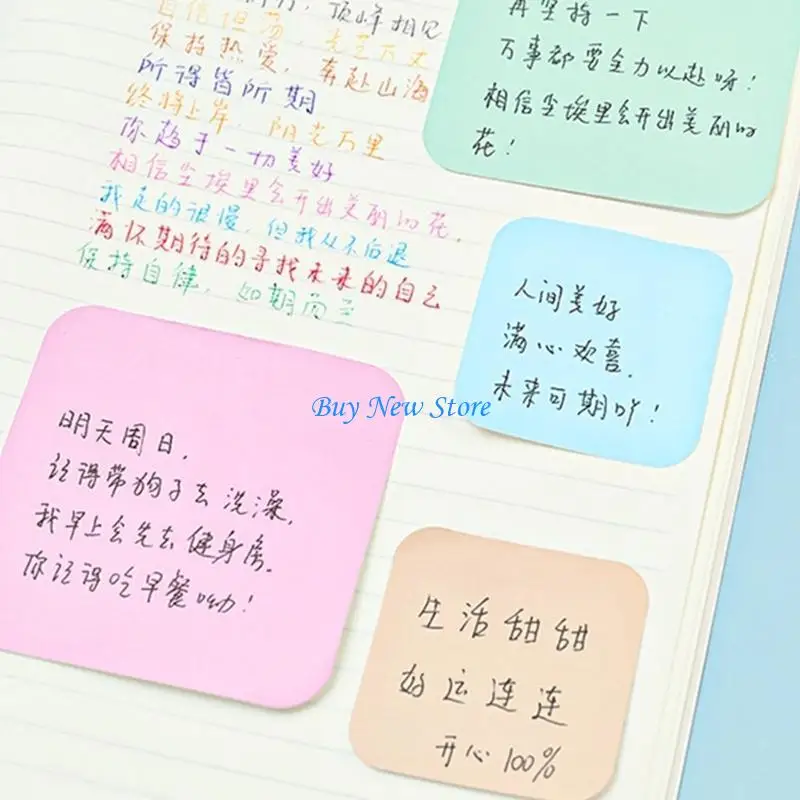 顶峰相见
自信坦荡，光芒万丈
保持热爱，奔赴山海
所得皆所期
终将上岸，阳光万里
你趋于一切美好
相信尘埃里会开出美丽的花，
我走的很慢，但我从不后退
满怀期待的寻找未来的自己
保持自律，如期而至
再坚持一下
万事都要全力以赴呀！
相信尘埃里会开出美丽的
花！
人间美好
满心欢喜，
未来可期吖！
Buy New Store
明天周日，
记得带狗子去洗澡，
我早上会先去健身房，
你记得吃早餐呦！
生活甜甜
好运连连
开心100%